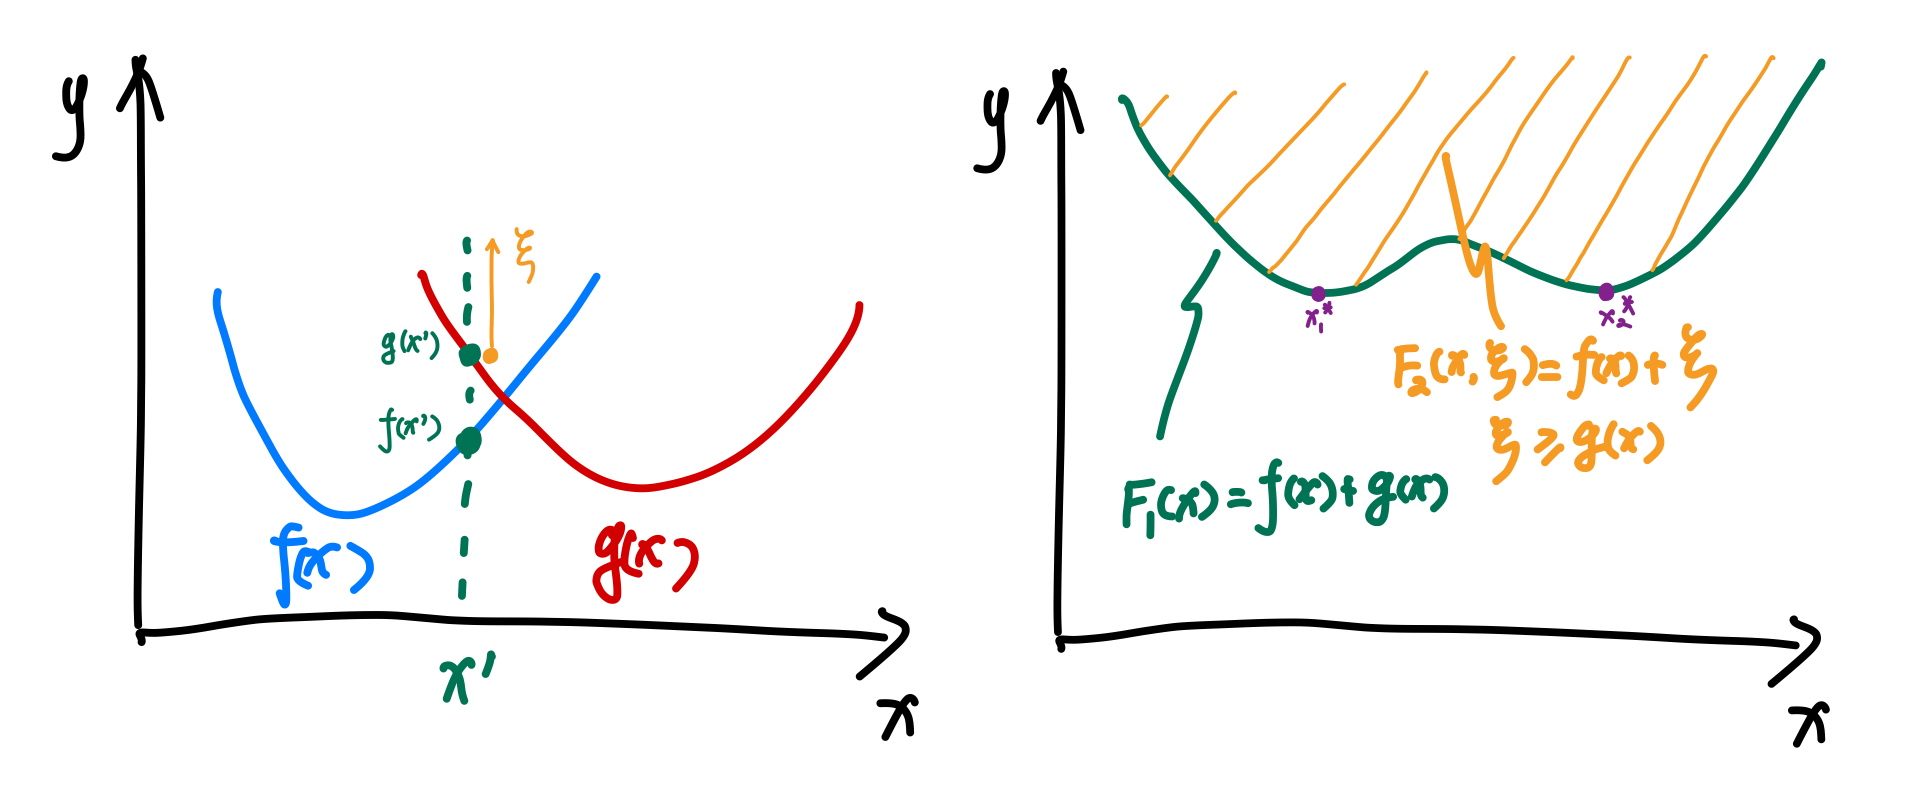 y
ξ
g(x')
f(x')
f(x)
g(x)
x'
x
y
x₁*
x₂*
F₂(x, ξ) = f(x) + ξ
ξ ⩾ g(x)
F₁(x) = f(x) + g(x)
x